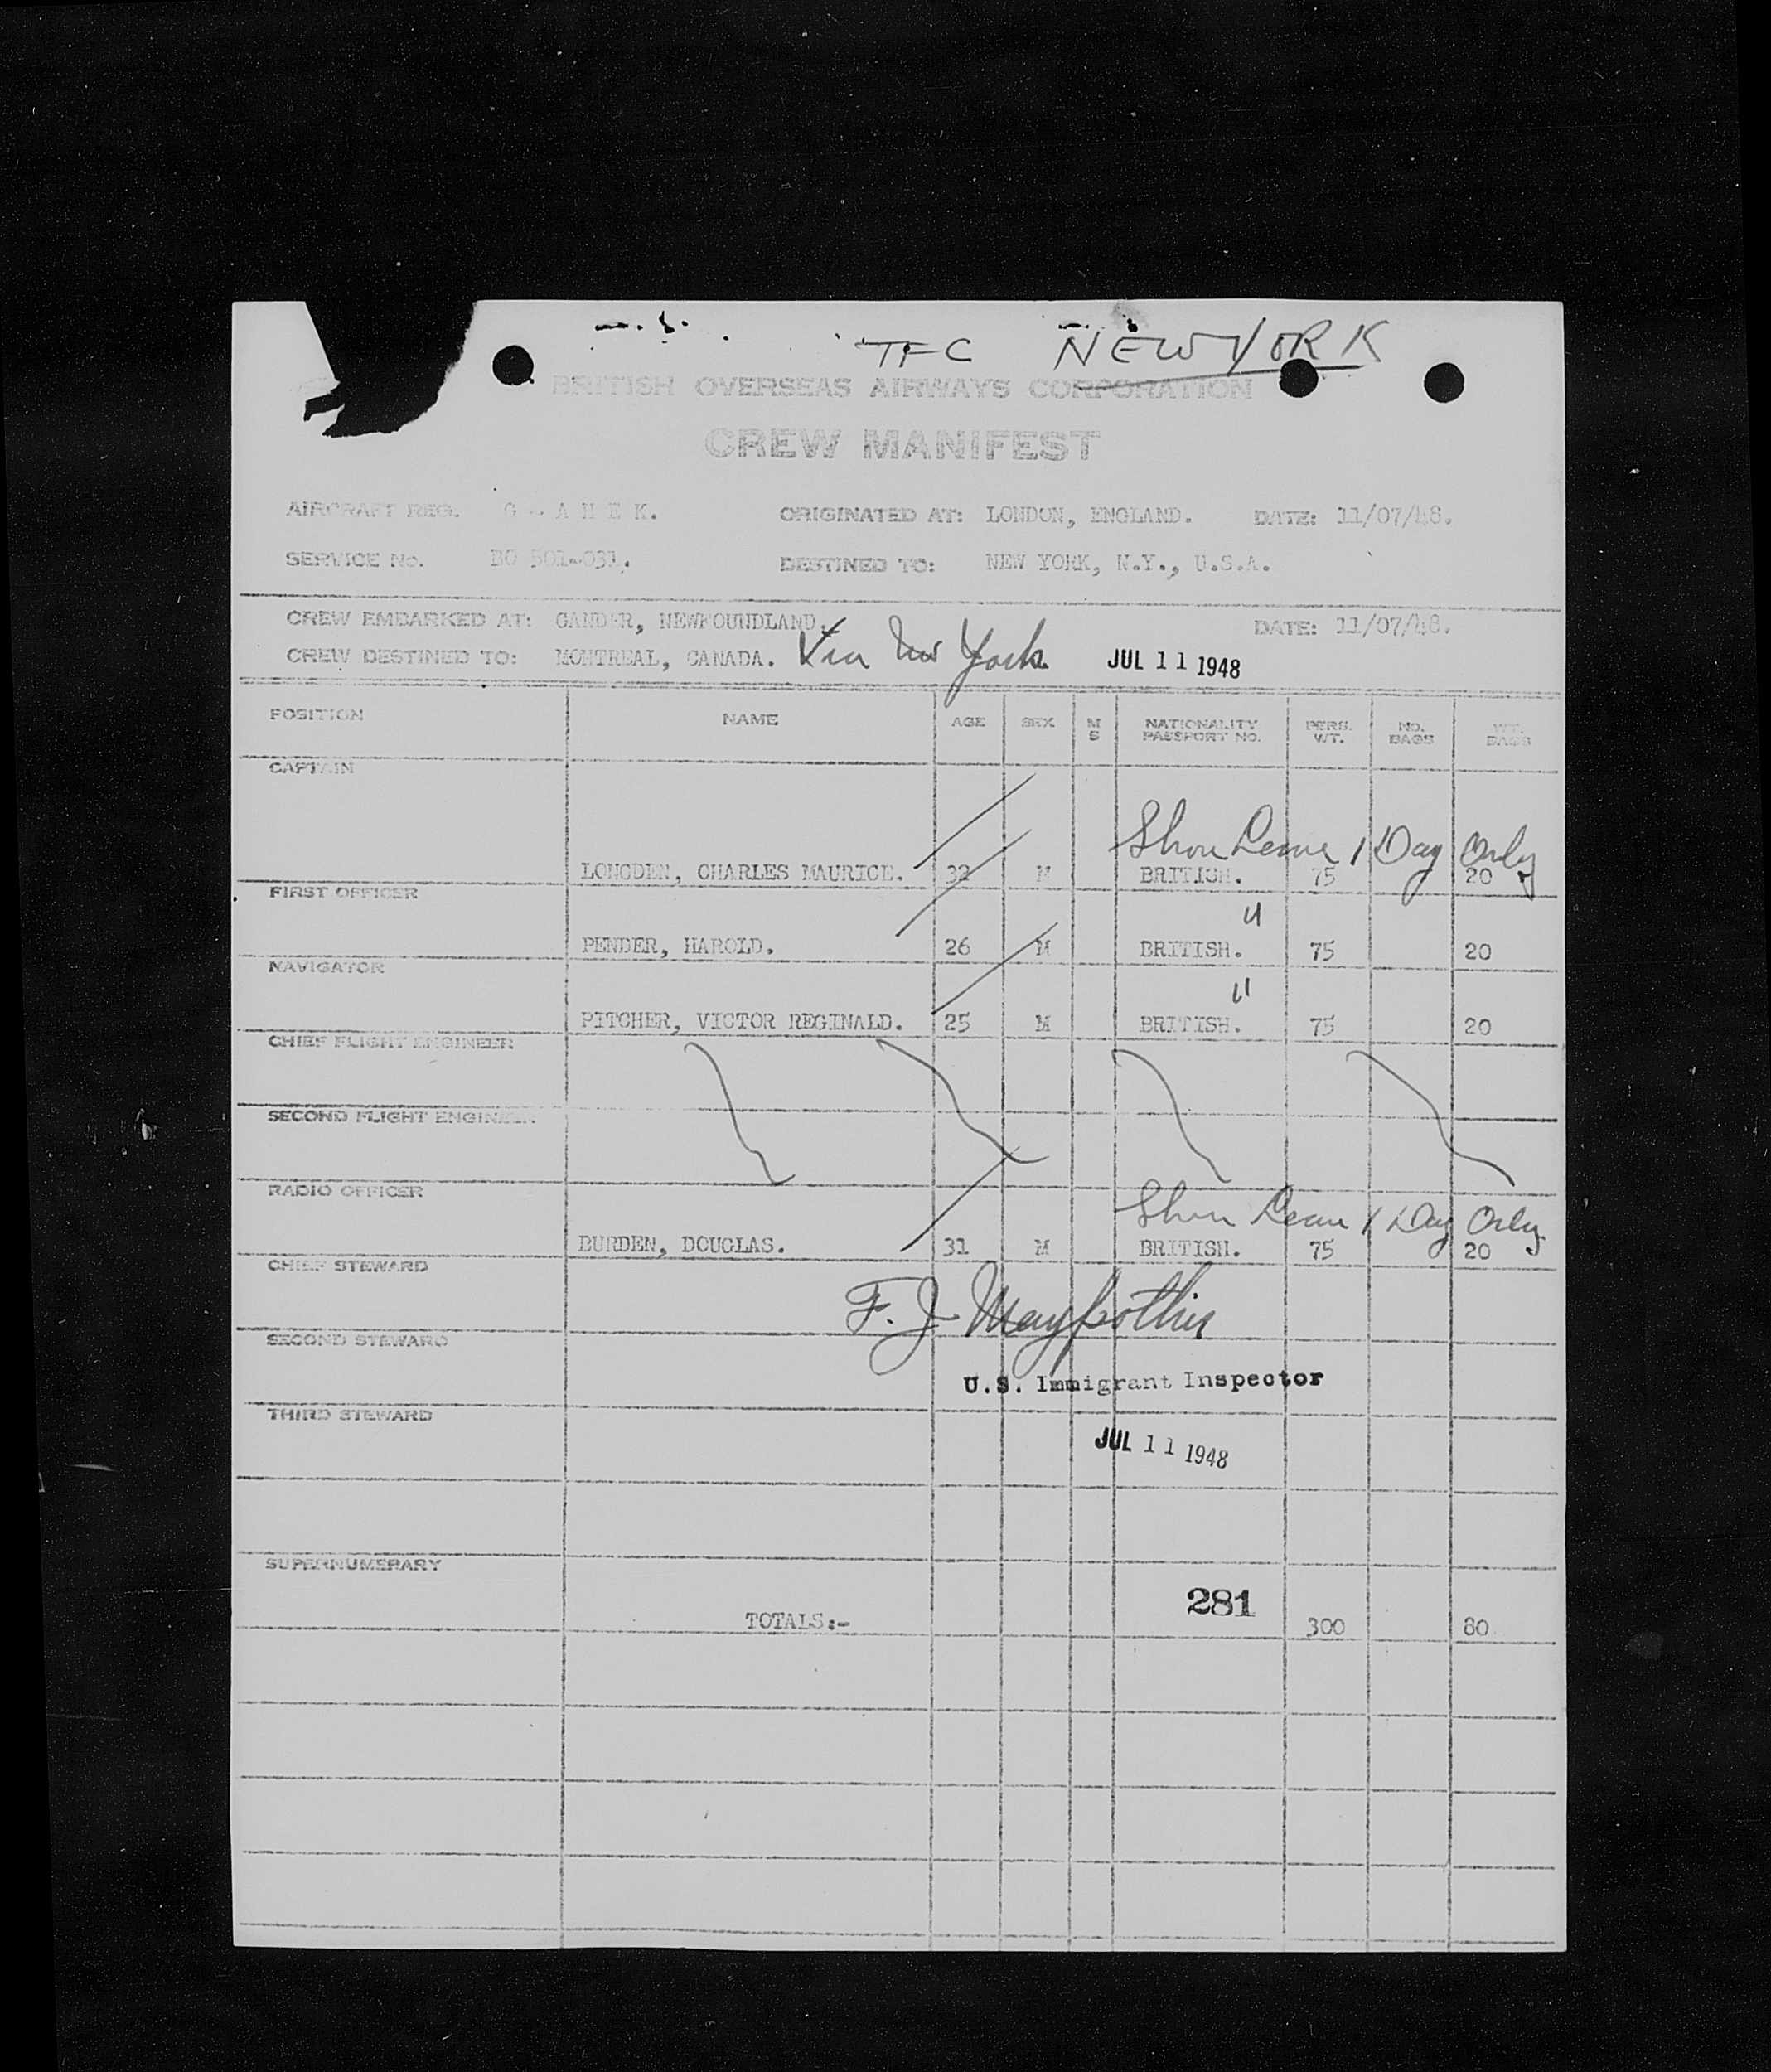 TFC NEW YORK
BRITISH OVERSEAS AIRWAYS CORPORATION
CREW MANIFEST
AIRCRAFT REG. G - A H E K. ORIGINATED AT: LONDON, ENGLAND. DATE: 11/07/48.
SERVICE No. BO 501-031. DESTINED TO: NEW YORK, N.Y., U.S.A.
CREW EMBARKED AT: GANDER, NEWFOUNDLAND. DATE: 11/07/48.
CREW DESTINED TO: MONTREAL, CANADA. Via New York JUL 11 1948
POSITION NAME AGE SEX M S NATIONALITY PASSPORT NO. PERS. WT. NO. BAGS WT. BAGS
CAPTAIN
Shore Leave 1 Day Only
LONGDEN, CHARLES MAURICE. 32 M BRITISH. 75 20
FIRST OFFICER
"
PENDER, HAROLD. 26 M BRITISH. 75 20
NAVIGATOR
"
PITCHER, VICTOR REGINALD. 25 M BRITISH. 75 20
CHIEF FLIGHT ENGINEER
SECOND FLIGHT ENGINEER
RADIO OFFICER
Shore Leave 1 Day Only
BURDEN, DOUGLAS. 31 M BRITISH. 75 20
CHIEF STEWARD
F. J.
SECOND STEWARD
U.S. Immigrant Inspector
THIRD STEWARD
JUL 11 1948
SUPERNUMERARY
281
TOTALS:- 300 80